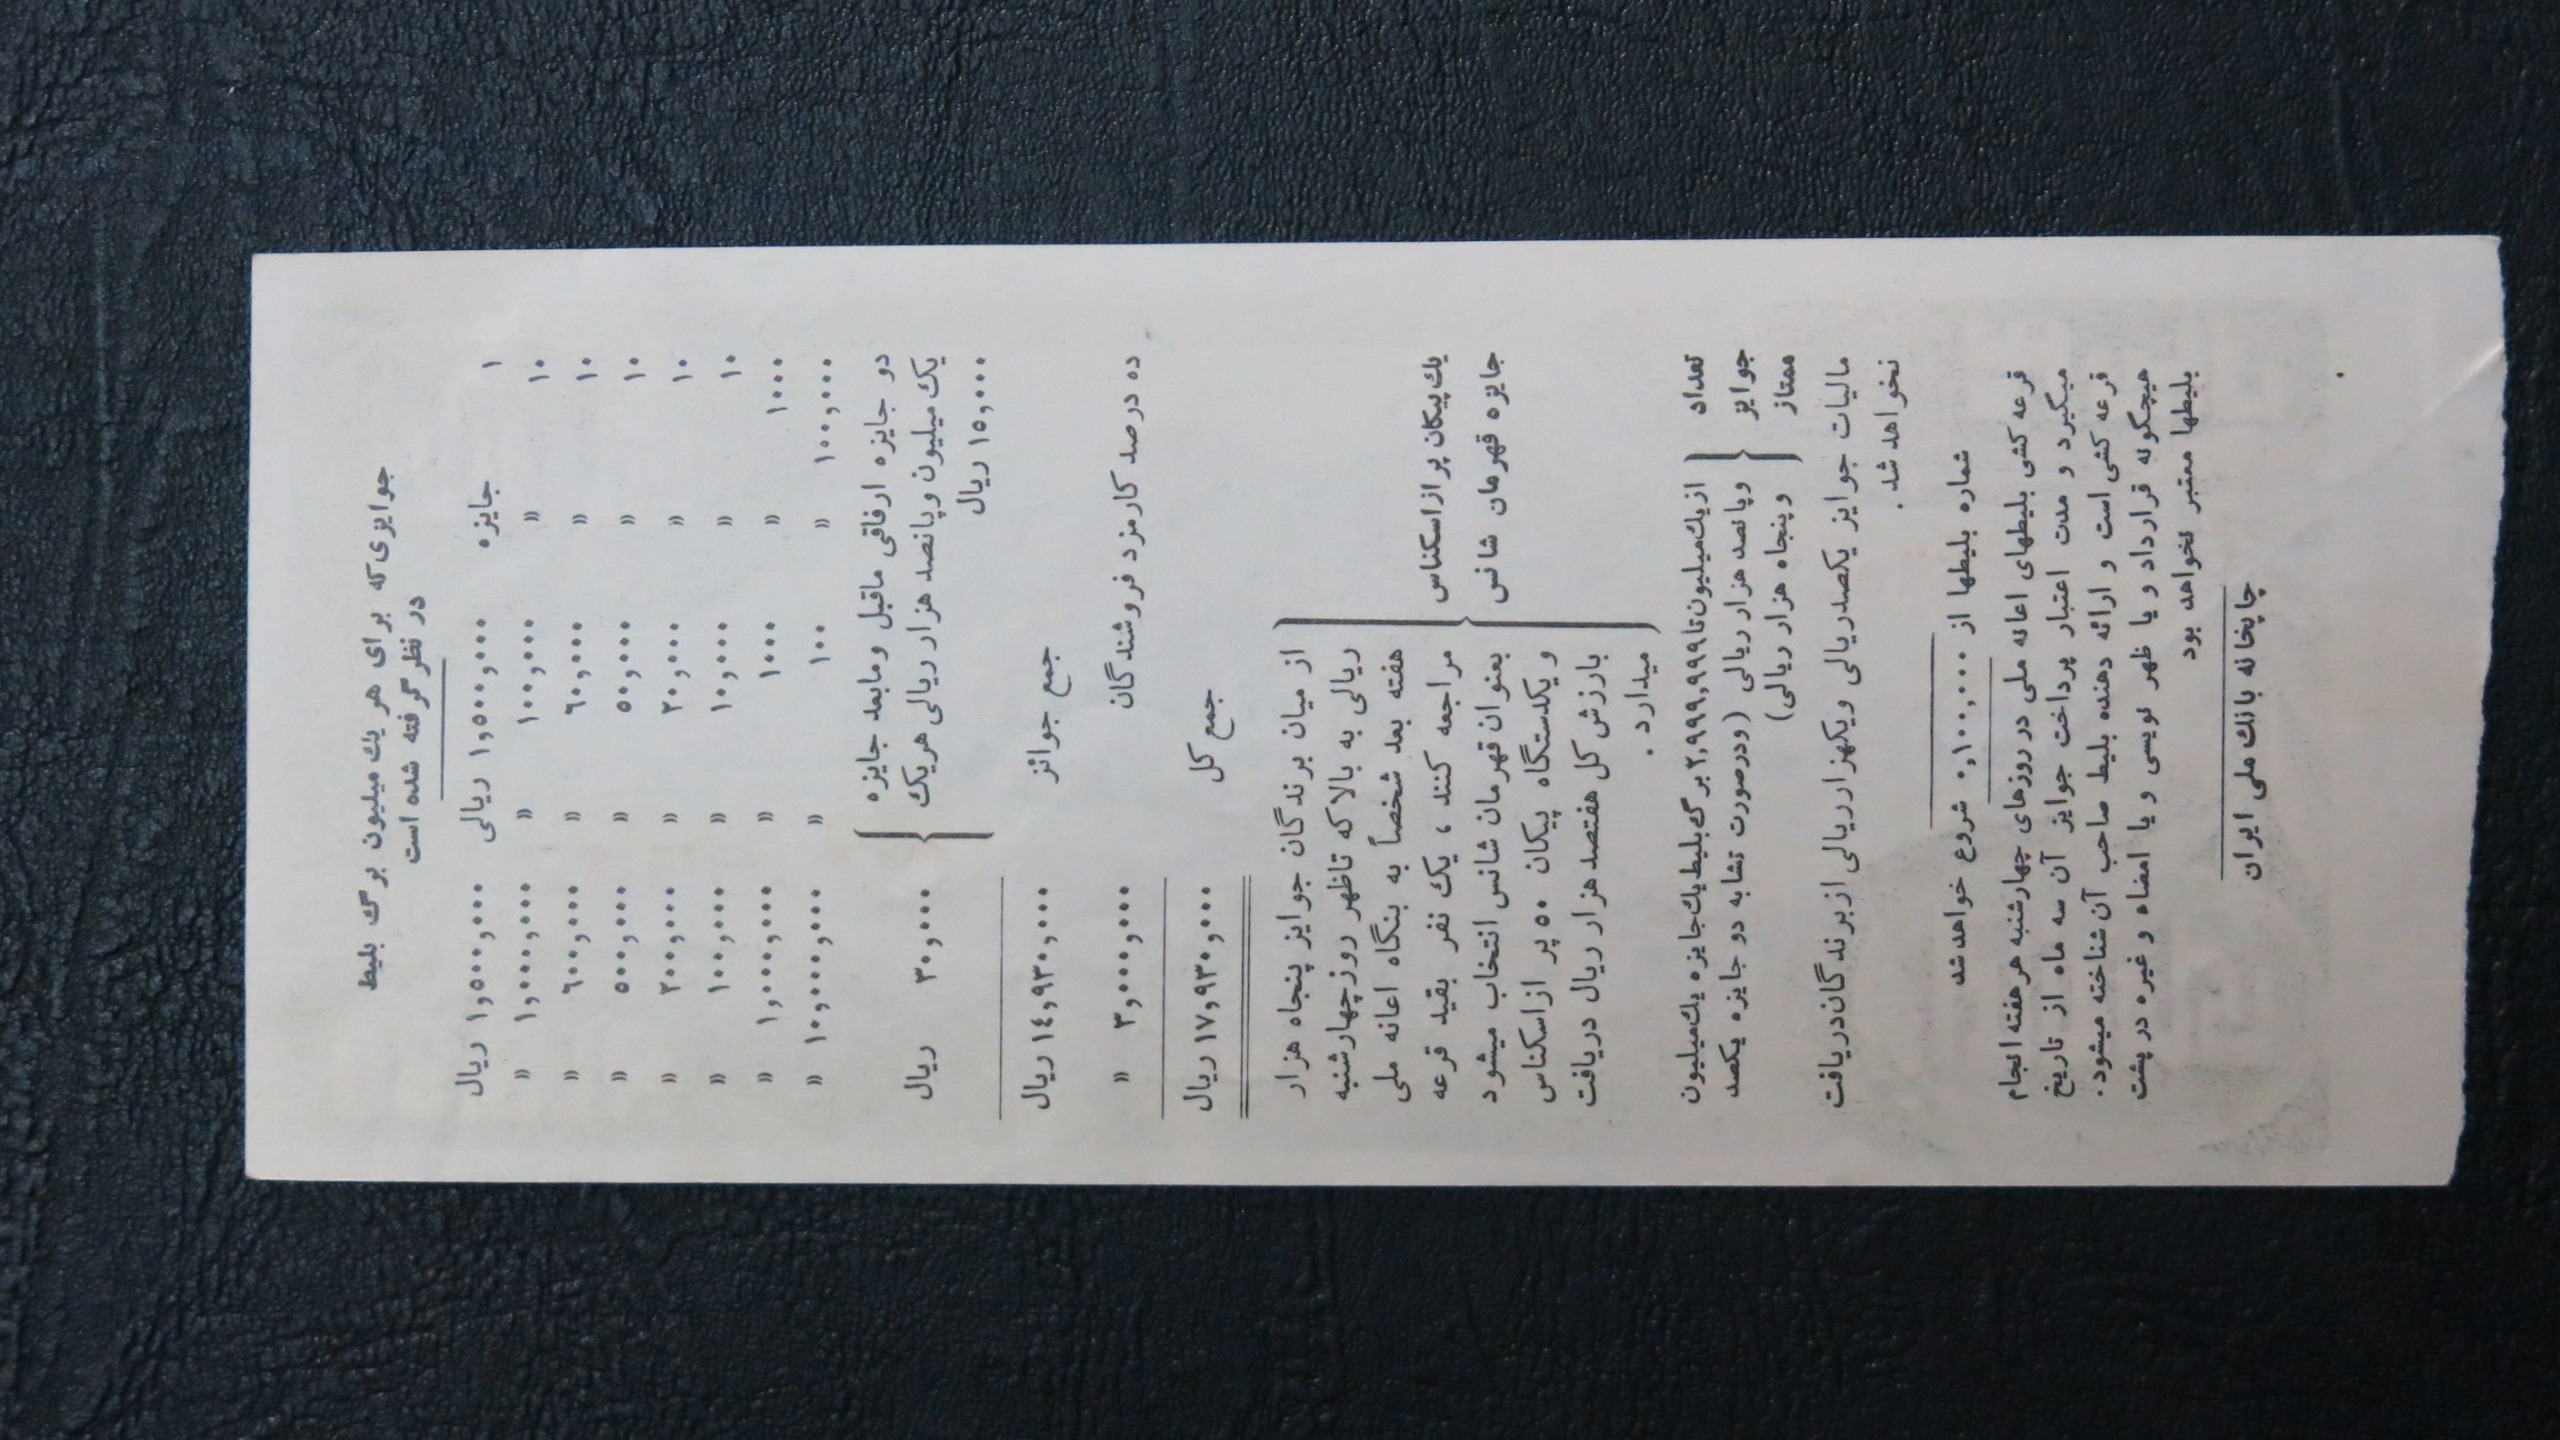 جوایزی که برای هر یك میلیون برگ بلیط
در نظر گرفته شده است
۱ جایزه ۱,۵۰۰,۰۰۰ ریالی ۱,۵۰۰,۰۰۰ ریال
۱۰ » ۱۰۰,۰۰۰ » ۱,۰۰۰,۰۰۰ »
۱۰ » ۶۰,۰۰۰ » ۶۰۰,۰۰۰ »
۱۰ » ۵۰,۰۰۰ » ۵۰۰,۰۰۰ »
۱۰ » ۲۰,۰۰۰ » ۲۰۰,۰۰۰ »
۱۰ » ۱۰,۰۰۰ » ۱۰۰,۰۰۰ »
۱۰۰۰ » ۱۰۰۰ » ۱,۰۰۰,۰۰۰ »
۱۰۰,۰۰۰ » ۱۰۰ » ۱۰,۰۰۰,۰۰۰ »
دو جایزه ارفاقی ماقبل ومابعد جایزه
یک میلیون وپانصد هزار ریالی هریک
۱۵,۰۰۰ ریال
۳۰,۰۰۰ ریال
جمع جوائز ۱٤,۹۳۰,۰۰۰ ریال
ده درصد کارمزد فروشندگان ۳,۰۰۰,۰۰۰ »
جمع کل ۱۷,۹۳۰,۰۰۰ ریال
یك پیکان پر از اسکناس
جایزه قهرمان شانس
از میان برندگان جوایز پنجاه هزار
ریالی به بالا که تاظهر روز چهارشنبه
هفته بعد شخصاً به بنگاه اعانه ملی
مراجعه کنند ، یک نفر بقید قرعه
بعنوان قهرمان شانس انتخاب میشود
و یکدستگاه پیکان ۵۰ پر از اسکناس
بارزش کل هفتصد هزار ریال دریافت
میدارد .
تعداد
جوایز
ممتاز
از یك میلیون تا ۲,۹۹۹,۹۹۹ برگ بلیط یك جایزه یك میلیون
وپانصد هزار ریالی (ودرصورت تشابه دو جایزه یکصد
وپنجاه هزار ریالی)
مالیات جوایز یکصدریالی ویکهزارریالی از برندگان دریافت
نخواهد شد .
شماره بلیطها از ۰,۱۰۰,۰۰۰ شروع خواهد شد
قرعه کشی بلیطهای اعانه ملی در روزهای چهارشنبه هر هفته انجام
میگیرد و مدت اعتبار پرداخت جوایز آن سه ماه از تاریخ
قرعه کشی است و ارائه دهنده بلیط صاحب آن شناخته میشود.
هیچگونه قرارداد و یا ظهر نویسی و یا امضاء و غیره در پشت
بلیطها معتبر نخواهد بود
چاپخانه بانك ملی ایران